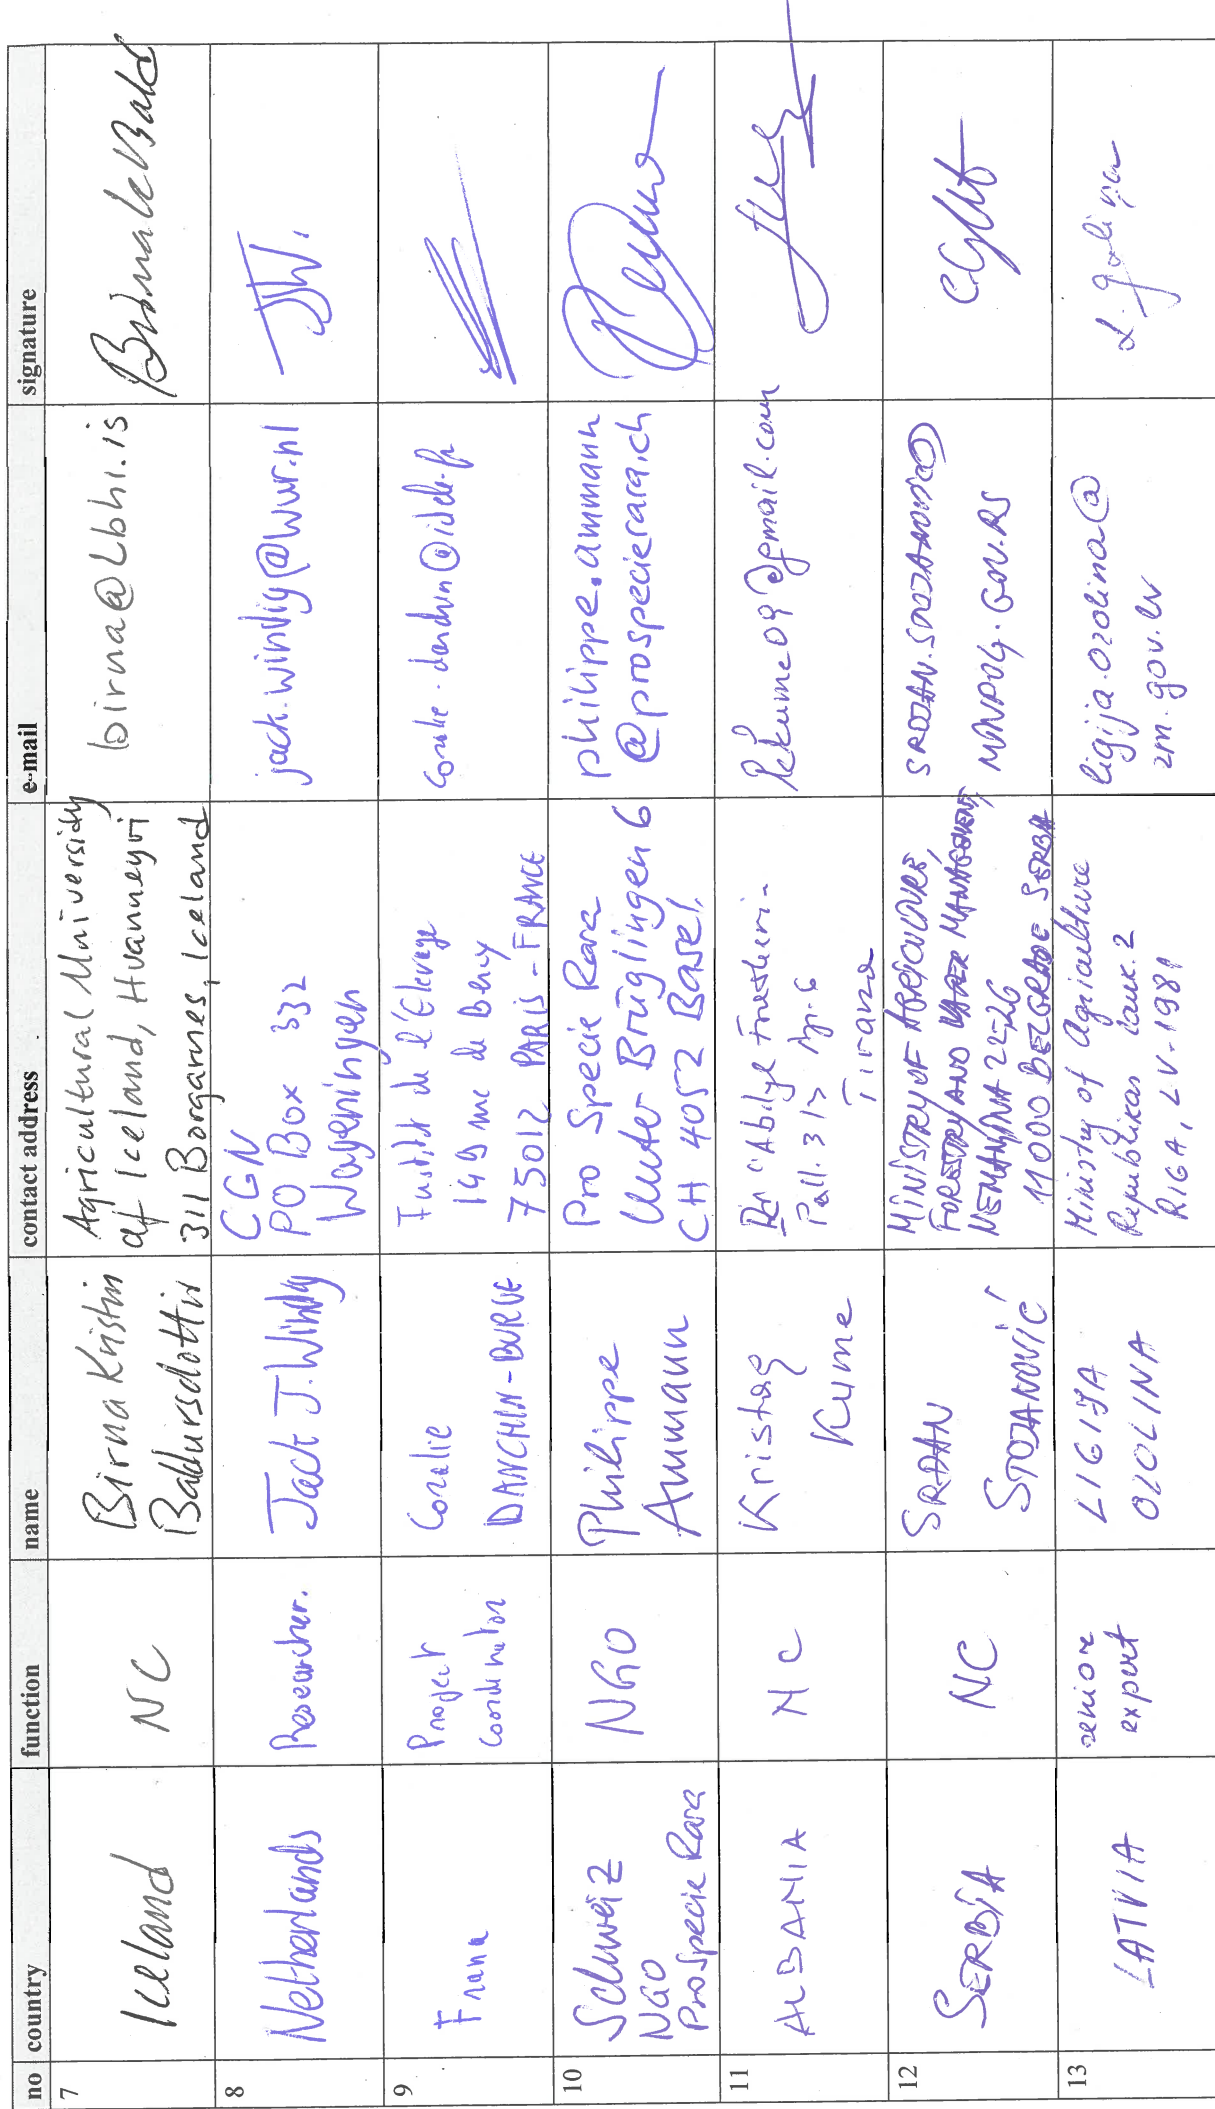 no country function name contact address e-mail signature
7
Iceland
NC
Birna Kristín
Baldursdóttir
Agricultural University
of Iceland, Hvanneyri
311 Borgarnes, Iceland
birna@Lbhi.is
8
Netherlands
Researcher.
Jack J. Windig
CGN
PO Box 332
Wageningen
jack.windig@wur.nl
9
Project
Coordinator
Coralie
DANCHIN-BURGE
Institut de l'Elevage
149 rue de Bercy
75012 PARIS - FRANCE
coralie.danchin@idele.fr
10
Schweiz
NGO
ProSpecie Rara
NGO
Philippe
Ammann
Pro Specie Rara
Unter Brüglingen 6
CH 4052 Basel,
philippe.ammann
@prospecierara.ch
11
ALBANIA
NC
Kristaq
Kume
Pall. 317 Ap. 6
Tirana
kume09@gmail.com
12
SERBIA
NC
SRĐAN
STOJANOVIĆ
MINISTRY OF AGRICULTURE,
FORESTRY AND WATER MANAGEMENT,
NEMANJINA 22-26
11000 BELGRADE SERBIA
SRDJAN.STOJANOVIC@
MINPOLJ.GOV.RS
13
LATVIA
senior
expert
LIGIJA
OZOLINA
Ministry of Agriculture
Republikas lauk. 2
RIGA, LV-1981
ligija.ozolina@
zm.gov.lv